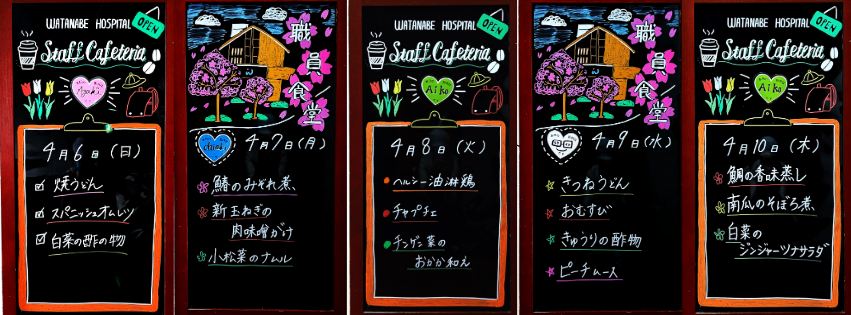 WATANABE HOSPITAL
OPEN
Staff Cafeteria
4月6日(日)
焼うどん
スパニッシュオムレツ
白菜の酢の物
職員食堂
chiaki
4月7日(月)
鰆のみぞれ煮、
新玉ねぎの
肉味噌がけ
小松菜のナムル
WATANABE HOSPITAL
OPEN
Staff Cafeteria
Aiko
4月8日(火)
ヘルシー油淋鶏
チャプチェ
チンゲン菜の
おかか和え
職員食堂
4月9日(水)
きつねうどん
おむすび
きゅうりの酢物
ピーチムース
WATANABE HOSPITAL
OPEN
Staff Cafeteria
Aiko
4月10日(木)
鯛の香味蒸し
南瓜のそぼろ煮、
白菜の
ジンジャーツナサラダ